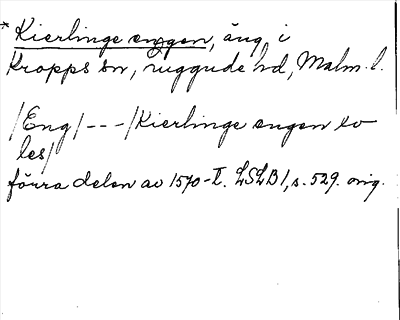 * Kierlinge engen, äng i
Kropps sn, Luggude hd, Malm. l.
/Eng/ --- /Kierlinge engen lv
les/
förra delen av 1570-t. LSLB 1, s. 529. orig.